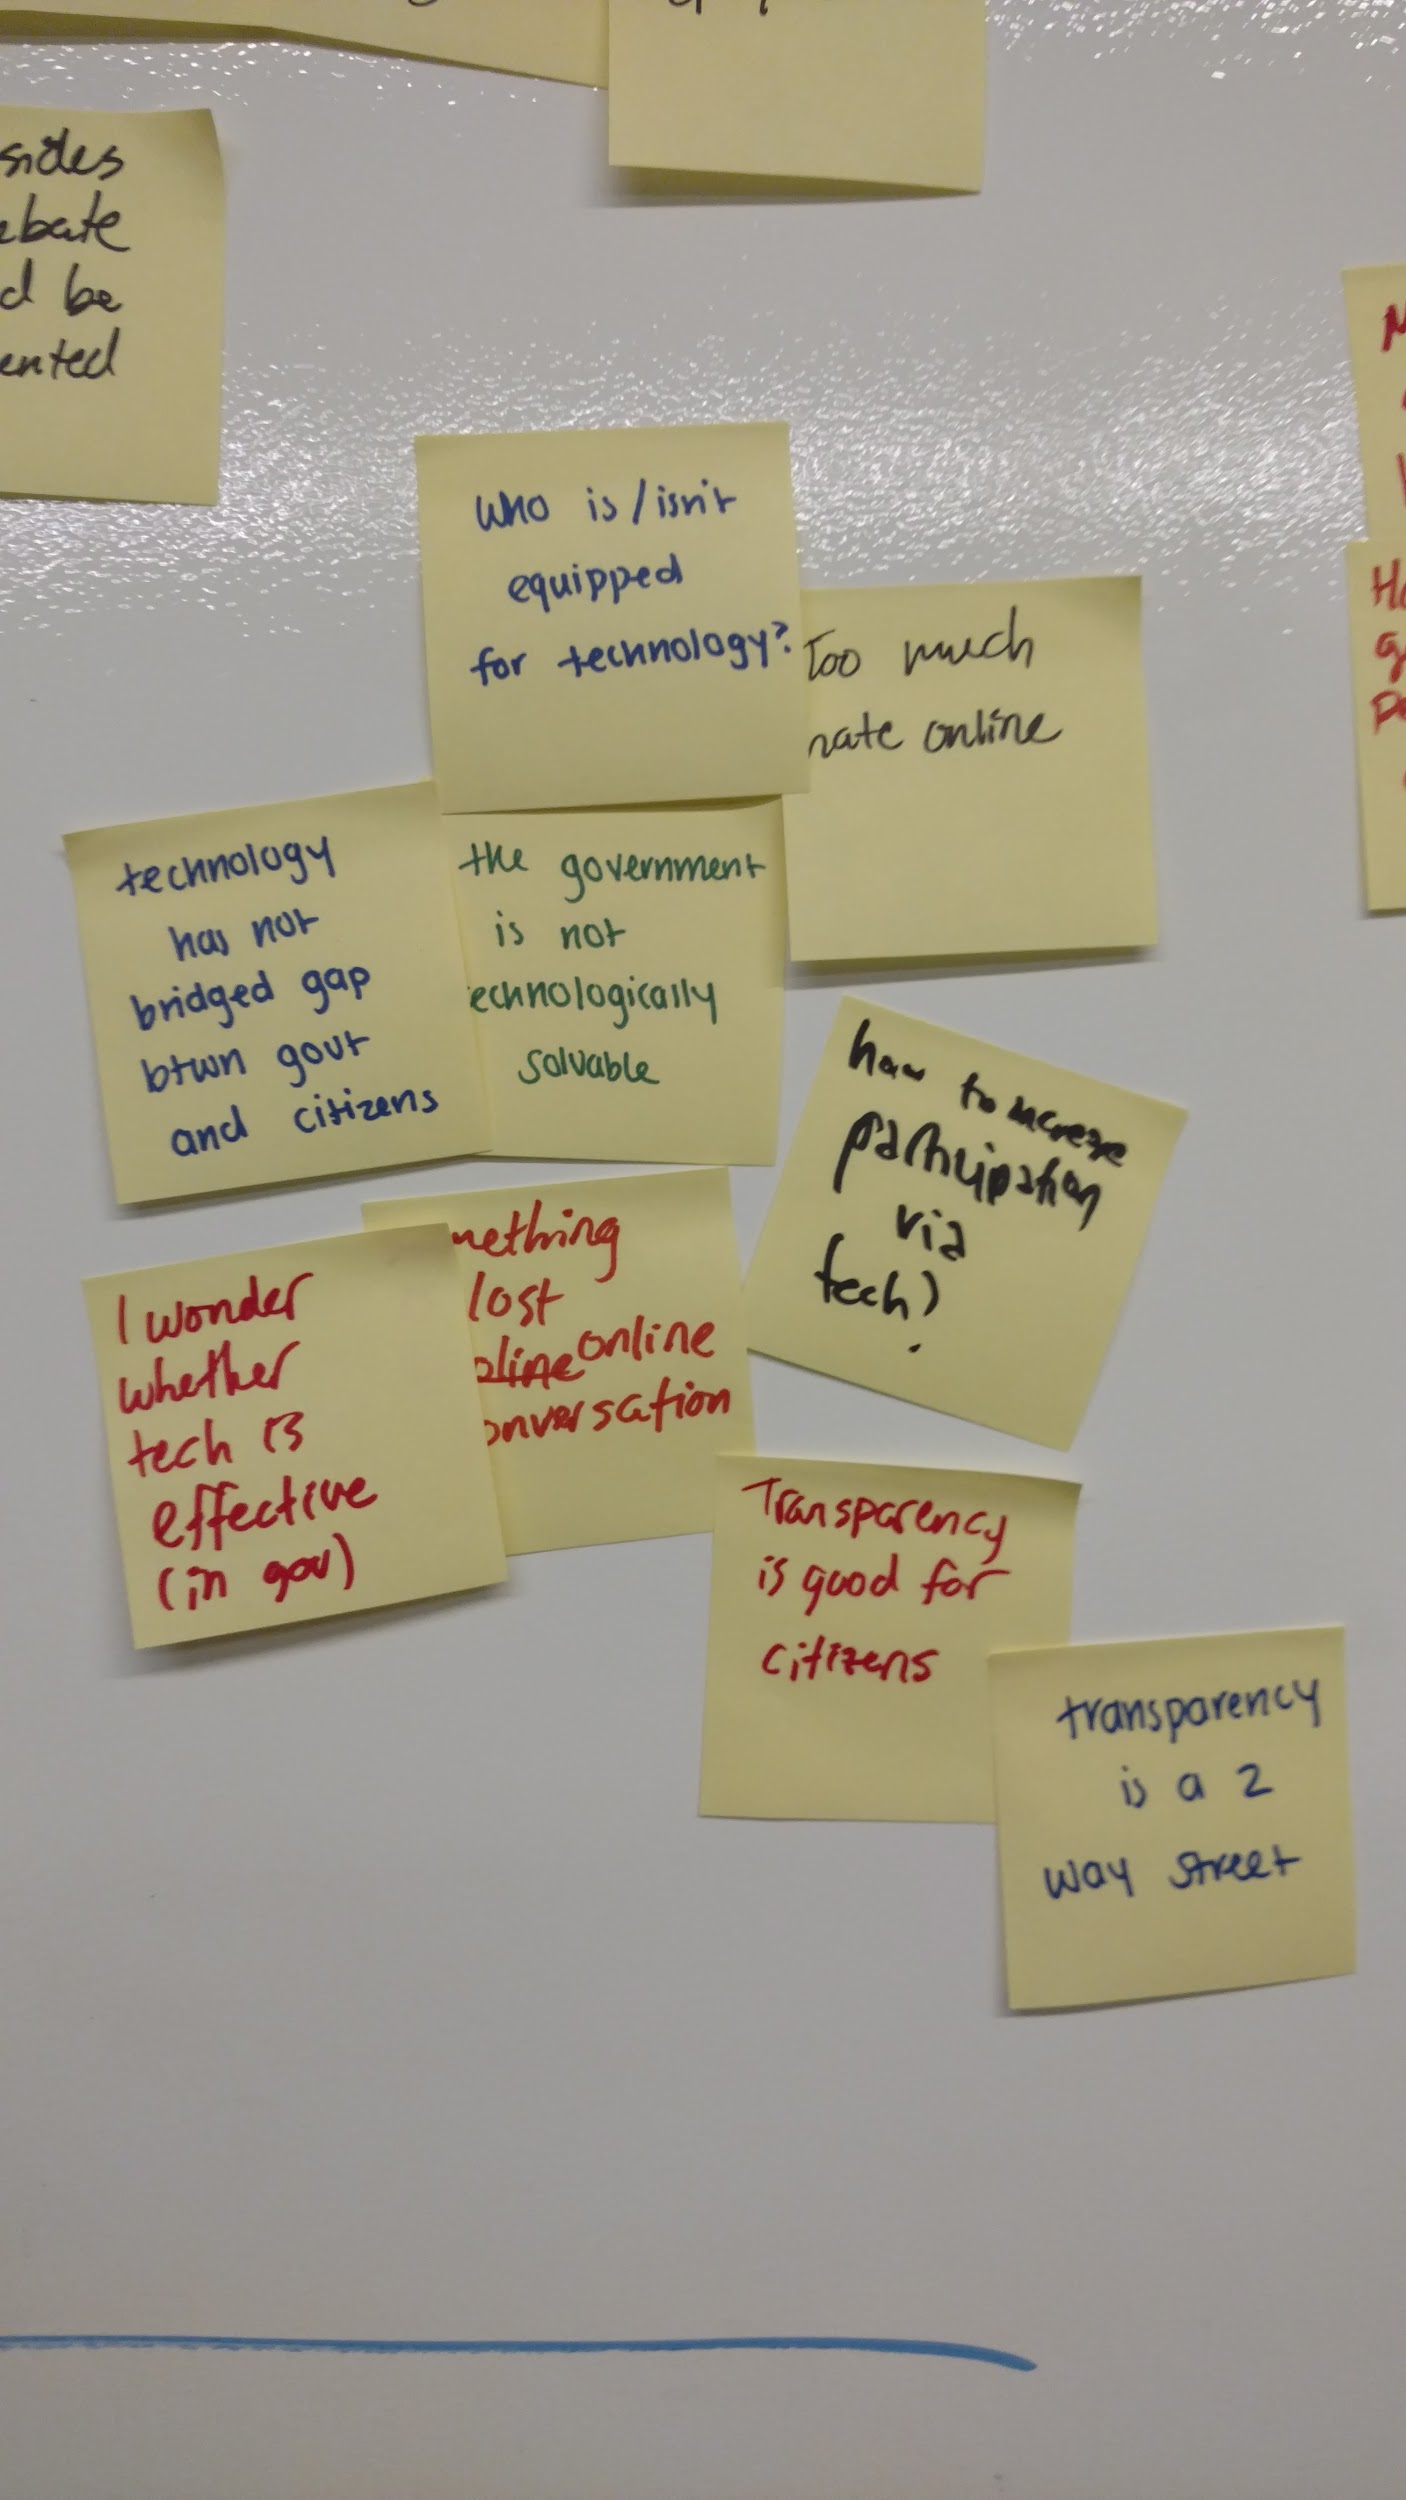 sides
ebate
d be
ented
who is/isn't
equipped
for technology?
Too much
hate online
technology
has not
bridged gap
btwn govt
and citizens
the government
is not
echnologically
solvable
how to increase
participation
via
tech?
mething
lost
online
onversation
I wonder
whether
tech is
effective
(in gov)
Transparency
is good for
citizens
transparency
is a 2
way street